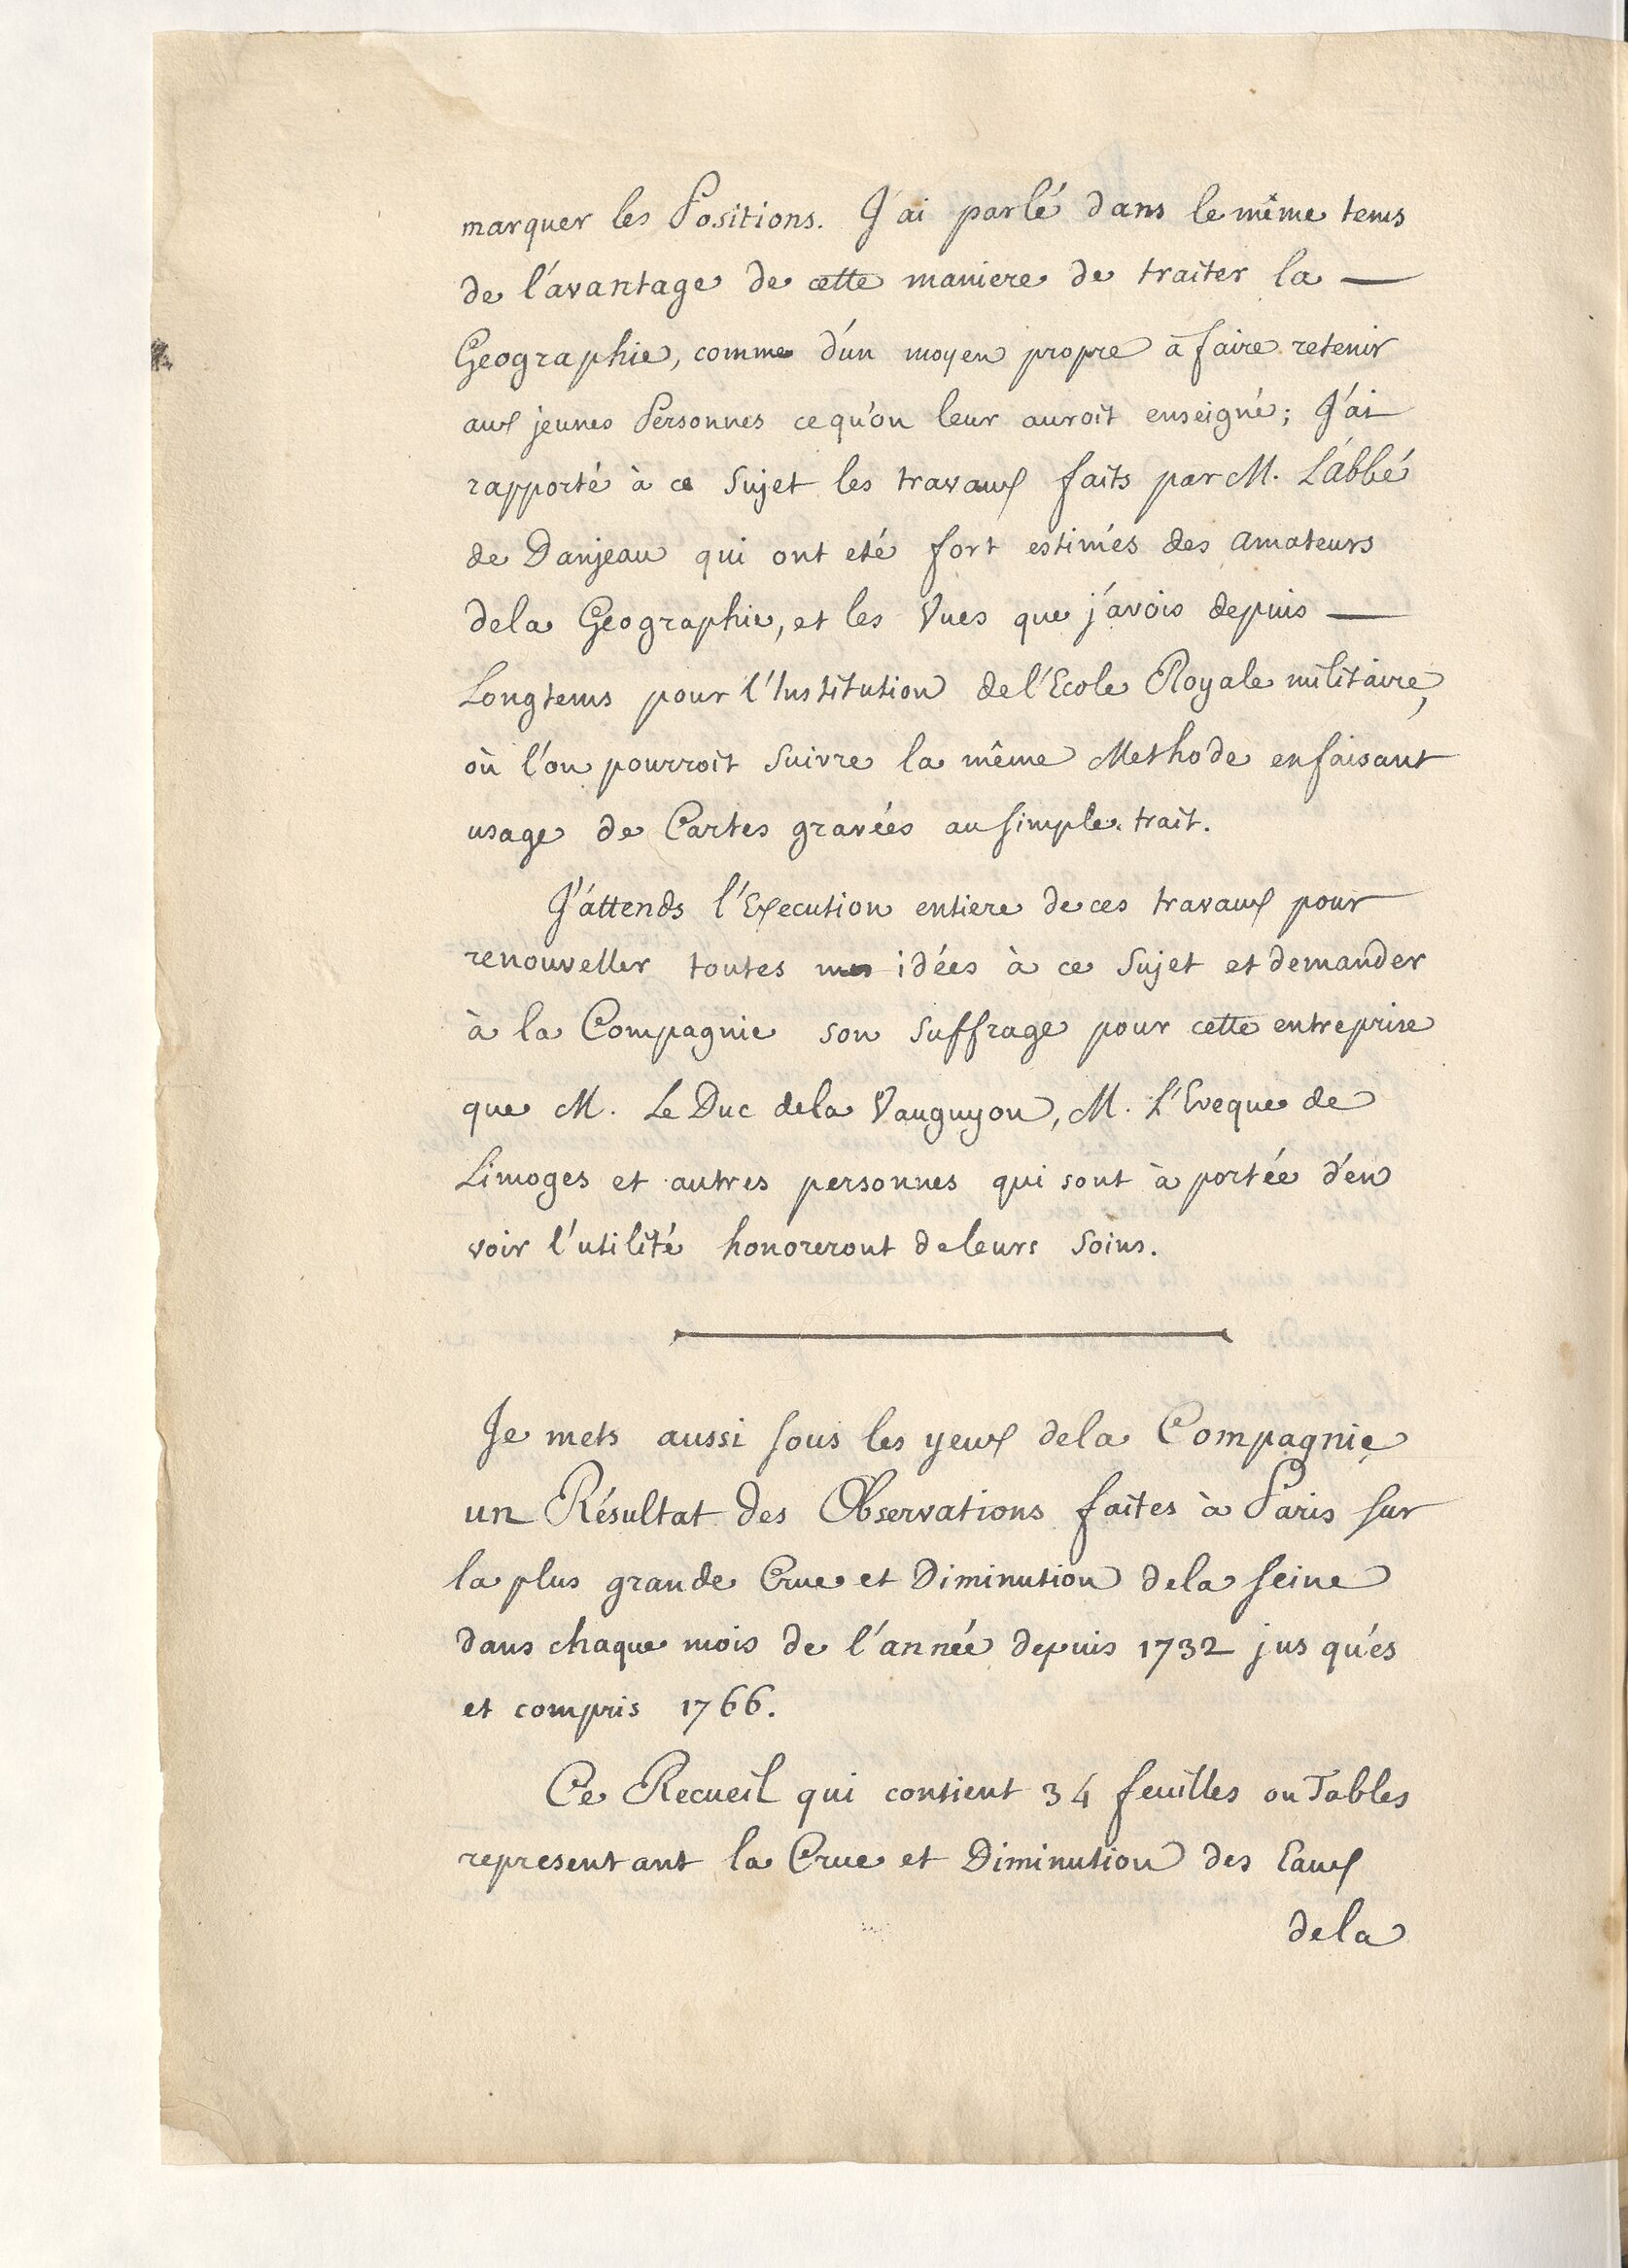 marquer les Positions. J'ai parlé dans le même tems
de l'avantage de cette maniere de traiter la —
Geographie, comme d'un moyen propre à faire retenir
aux jeunes Personnes ce qu'on leur auroit enseigné; J'ai
rapporté à ce Sujet les travaux faits par M. L'abbé
de Danjeau qui ont eté fort estimés des amateurs
dela Geographie, et les Vues que j'avois depuis —
Longtems pour l'Institution de l'Ecole Royale militaire,
où l'on pourroit Suivre la même Methode en faisant
usage de Cartes gravées au Simple trait.
J'attends l'Execution entiere de ces travaux pour
renouveller toutes mes idées à ce Sujet et demander
à la Compagnie son Suffrage pour cette entreprise
que M. Le Duc dela Vauguyon, M. L'Eveque de
Limoges et autres personnes qui sont à portée d'en
voir l'utilité honoreront de leurs Soins.
Je mets aussi Sous les yeux dela Compagnie
un Résultat des Observations faites à Paris Sur
la plus grande Crue et Diminution dela Seine
dans chaque mois de l'année depuis 1732 jus qu'es
et compris 1766.
Ce Recueil qui contient 34 feuilles ou Tables
represent ant la Crue et Diminution des Eaux
dela